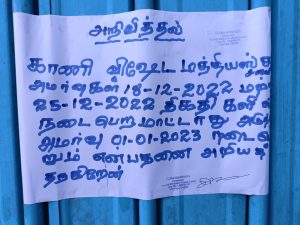 அறிவித்தல்
காணி விஷேட மத்தியஸ்த
அமர்வுகள் 18-12-2022
25-12-2022 திகதி களில்
நடை பெற மாட்டாது அடு
அமர்வு 01-01-2023 நடை
றும் என்பதனை அறியத்
தருகிறேன்